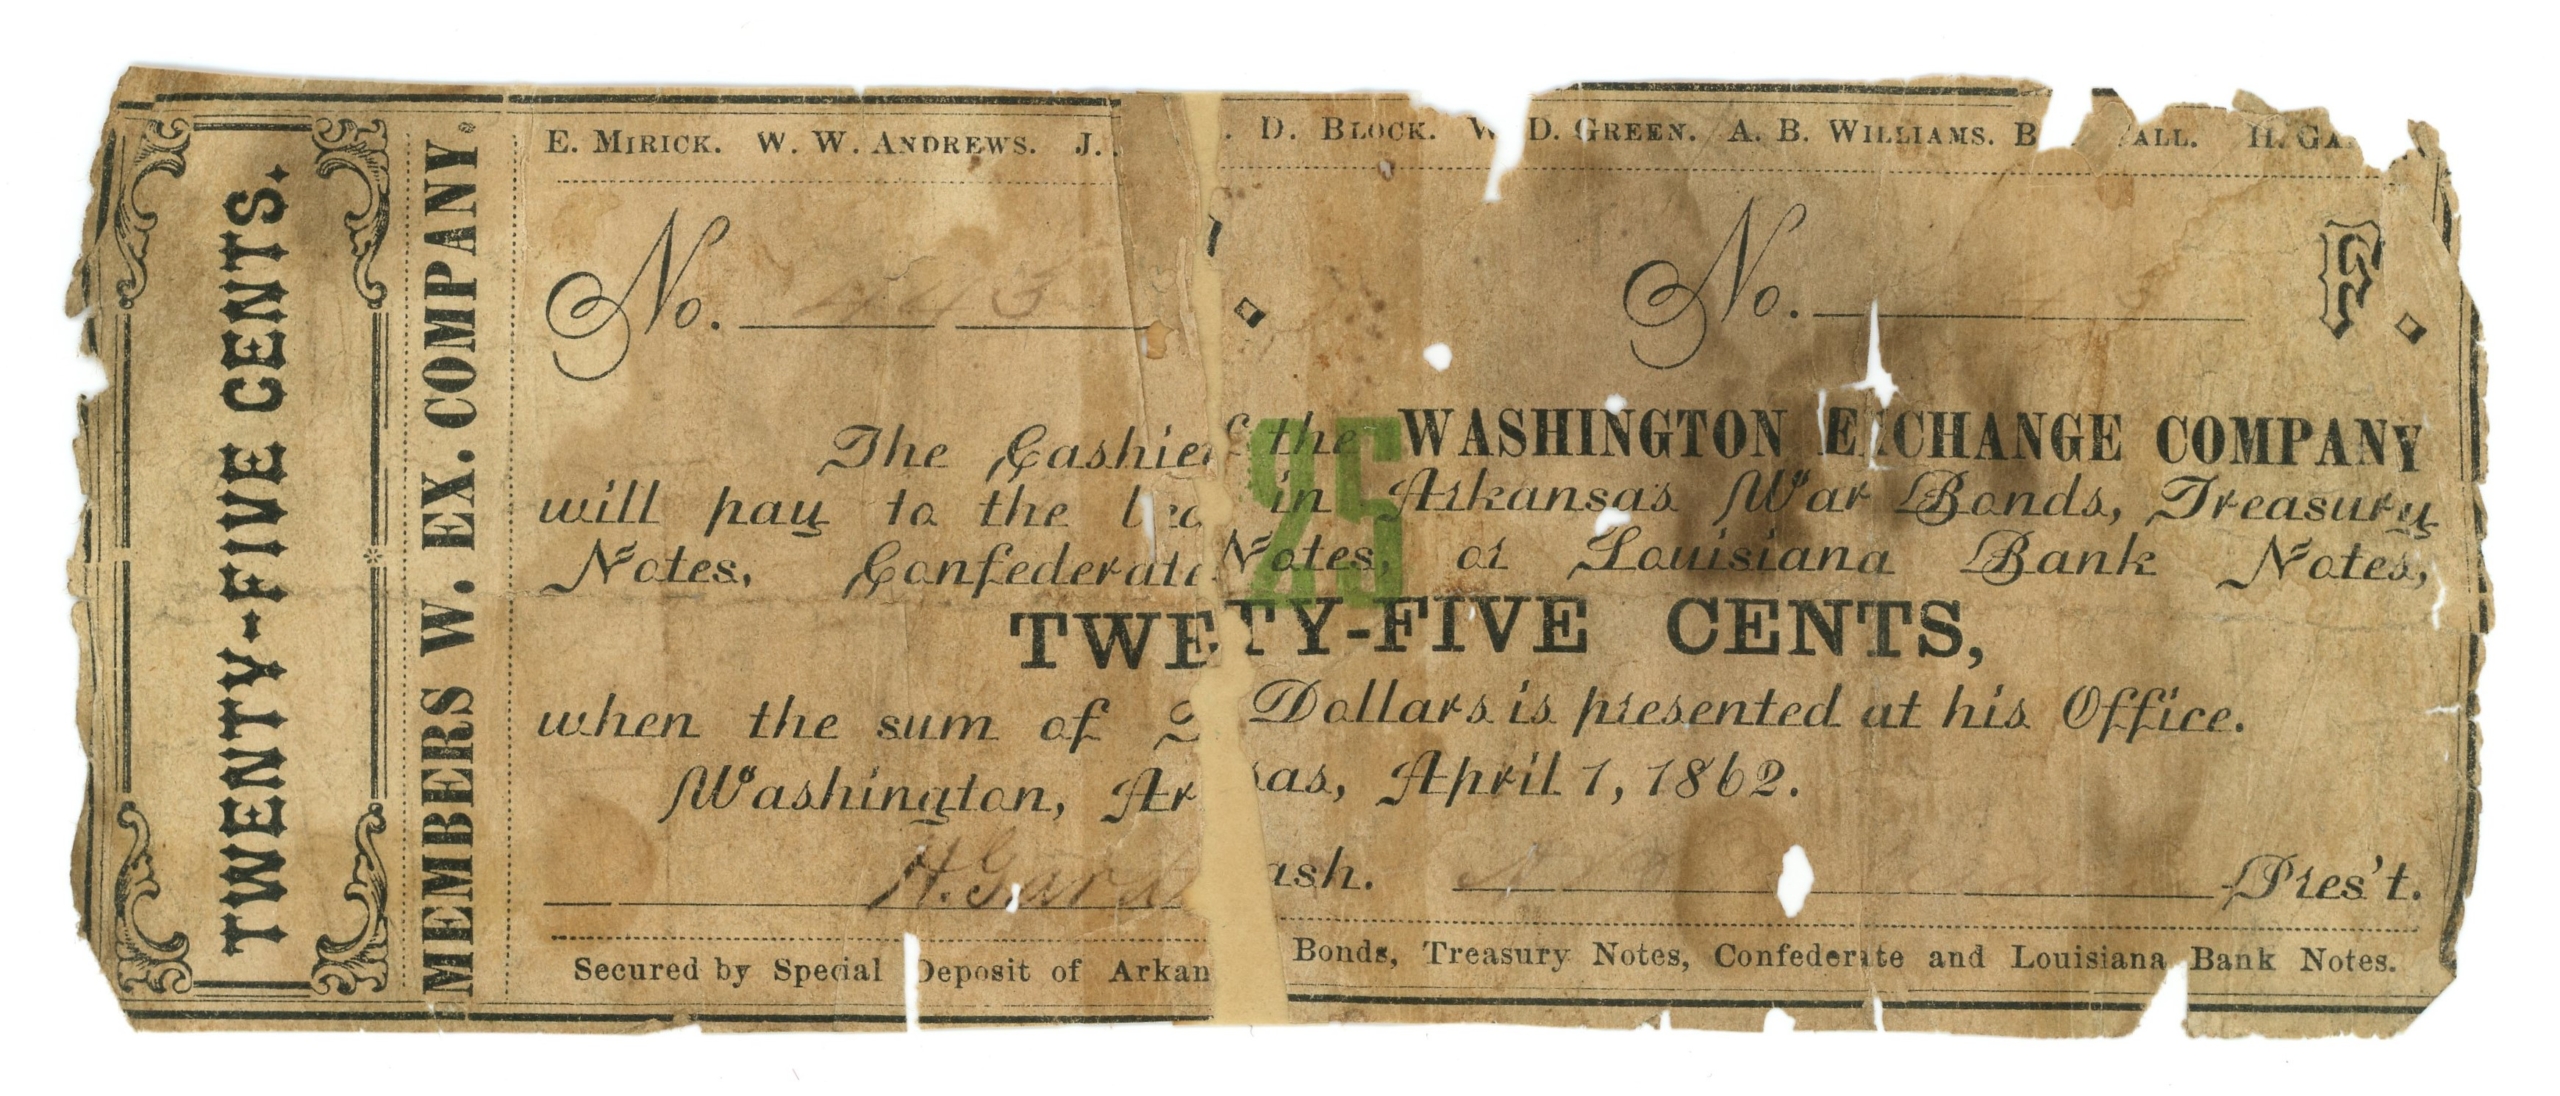 TWENTY-FIVE CENTS.
MEMBERS W. EX. COMPANY.
E. MIRICK. W. W. ANDREWS. J. D. BLOCK. W. D. GREEN. A. B. WILLIAMS. B ALL. H. GA
No. 443 No. F.
The Cashier the WASHINGTON EXCHANGE COMPANY
will pay to the in Arkansas War Bonds, Treasury
Notes, Confederate Notes, or Louisiana Bank Notes,
25
TWENTY-FIVE CENTS,
when the sum of Dollars is presented at his Office.
Washington, Ar sas, April 1, 1862.
H. Gard ash. Pres't.
Secured by Special Deposit of Arkan Bonds, Treasury Notes, Confederate and Louisiana Bank Notes.